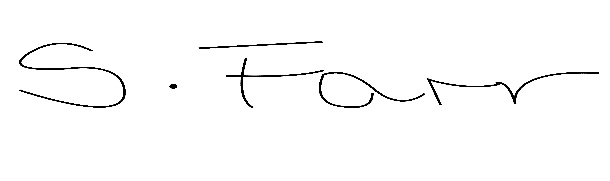 S. Farr